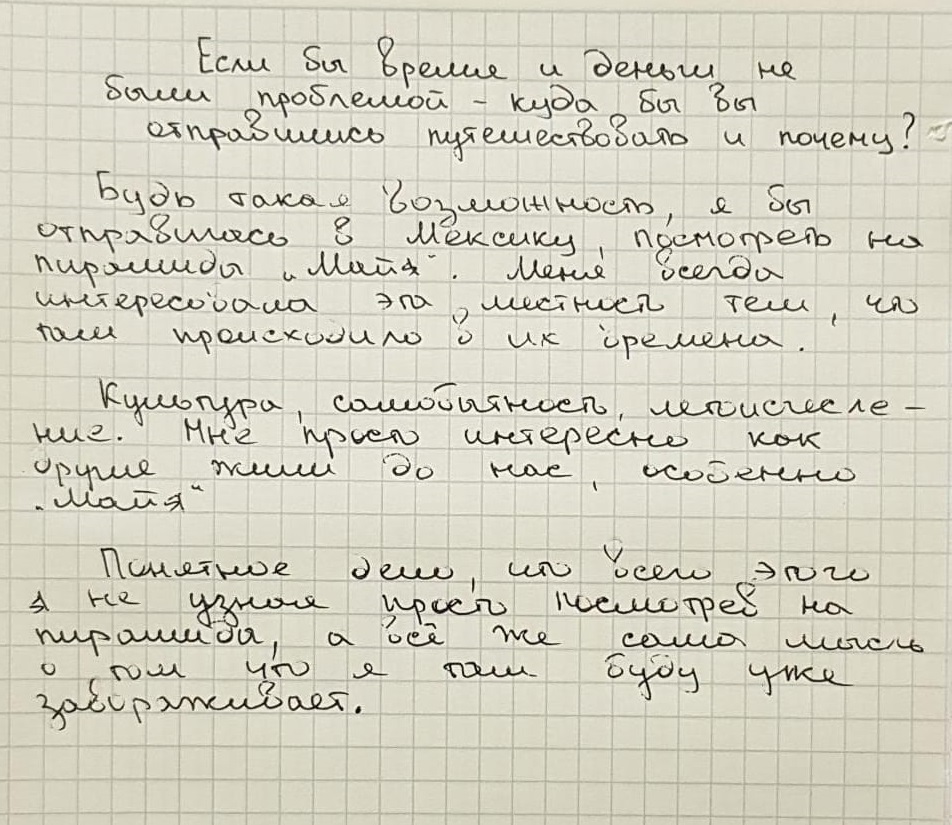 Если бы время и деньги не
были проблемой - куда бы вы
отправились путешествовать и почему?
Будь такая возможность, я бы
отправилась в Мексику, посмотреть на
пирамиды „Майя“. Меня всегда
интересовала эта местность тем, что
там происходило в их времена.
Культура, самобытность, летоисчесле-
ние. Мне просто интересно как
другие жили до нас, особенно
„Майя“
Понятное дело, что всего этого
я не узная просто посмотрев на
пирамида, а всё же сама мысль
о том что я там буду уже
завораживает.